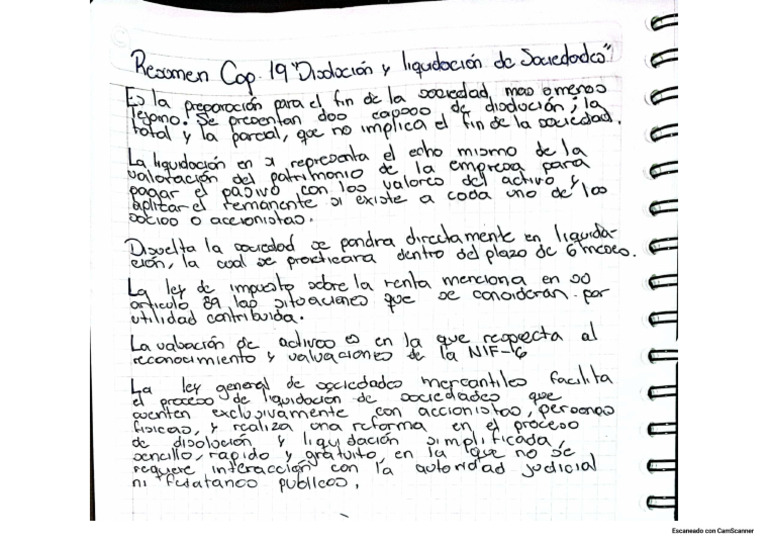 Resumen Cap. 19 "Disolución y liquidación de Sociedades"
Es la preparación para el fin de la sociedad, mas o menos
lejano. Se presentan dos casos de disolución; la
total y la parcial, que no implica el fin de la sociedad.
La liquidación en si representa el echo mismo de la
valoración del patrimonio de la empresa para
pagar el pasivo con los valores del activo y
aplicar el remanente si existe a cada uno de los
socios o accionistas.
Disuelta la sociedad se pondra directamente en liquida-
ción, la cual se practicara dentro del plazo de 6 meses.
La ley de impuesto sobre la renta menciona en su
articulo 89 las situaciones que se consideran por
utilidad contribuida.
La valuación de activos es en la que respecta al
reconocimiento y valuaciones de la NIF-6
La ley general de sociedades mercantiles facilita
el proceso de liquidación de sociedades que
cuenten exclusivamente con accionistas, personas
fisicas, y realiza una reforma en el proceso
de disolución y liquidación simplificada,
sencillo, rapido y gratuito, en la que no se
requiere interacción con la autoridad judicial
ni publicos.
Escaneado con CamScanner